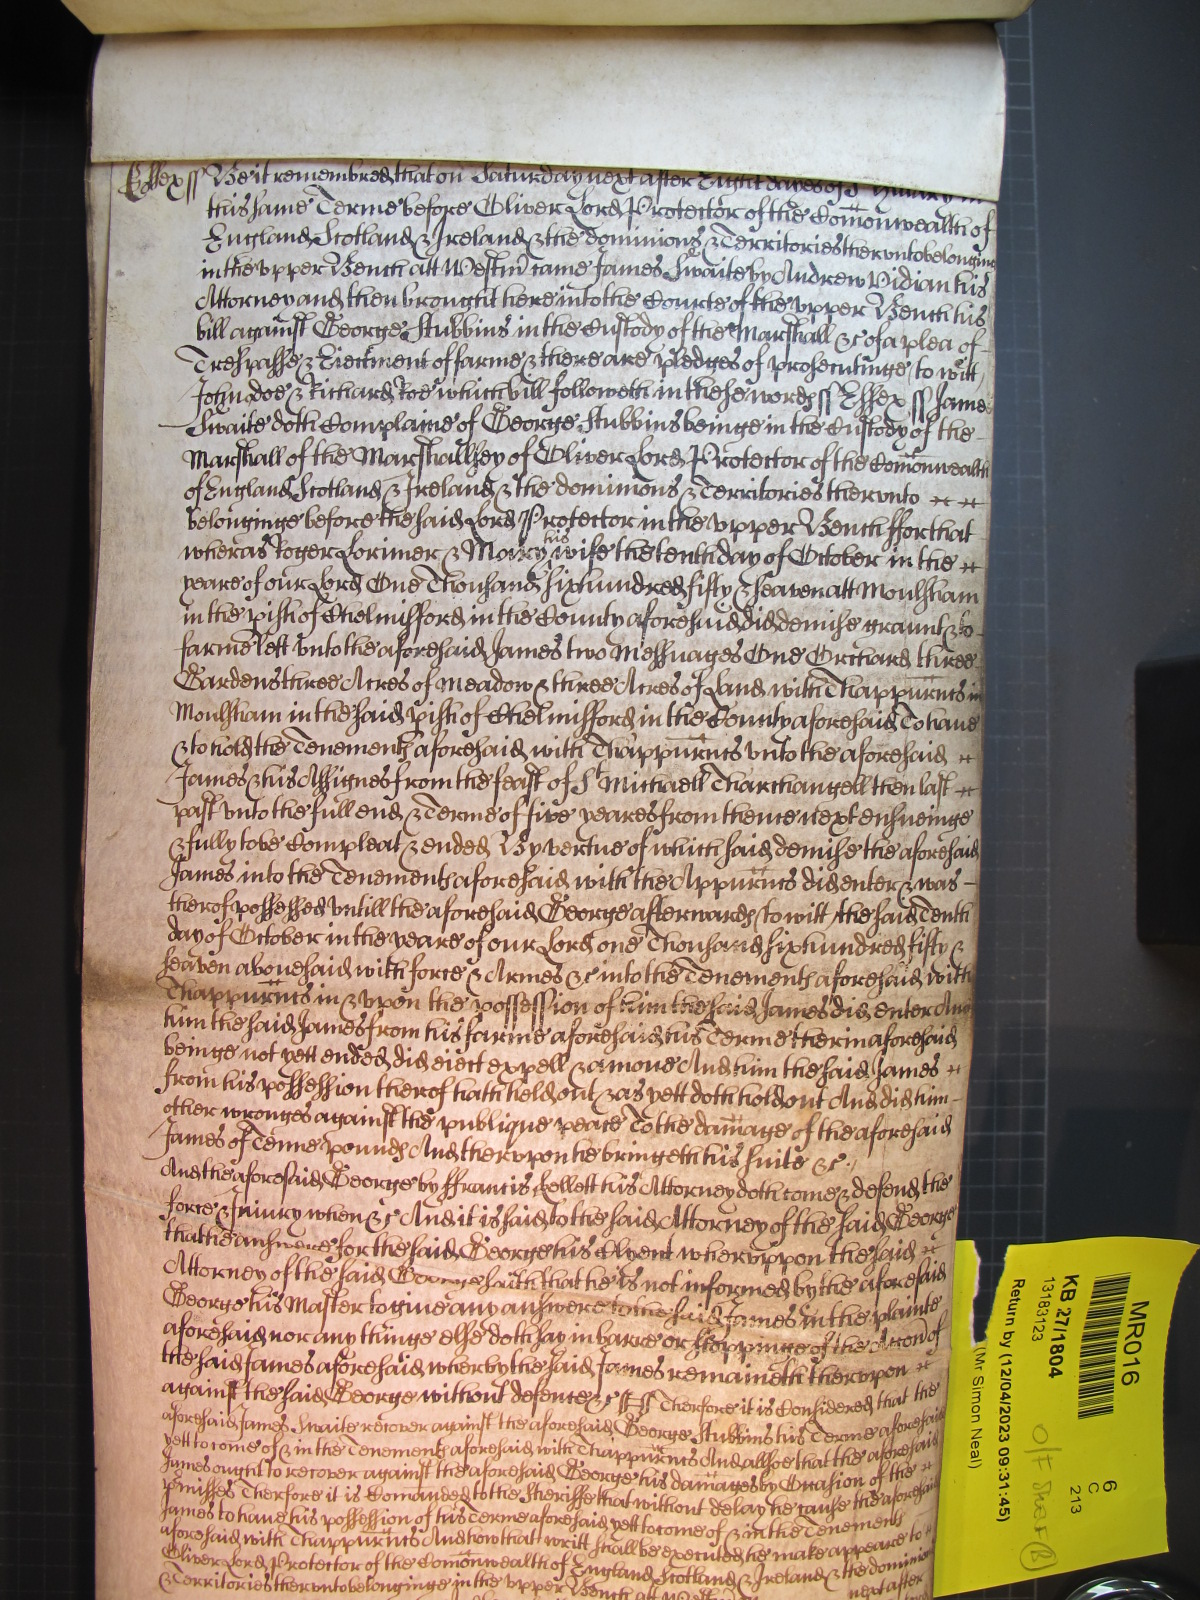 Essex ss Be it remembred that on Saturday next after Eight dayes of St Hillary in
this same Terme before Oliver Lord Protector of the Com̄onwealth of
England Scotland & Ireland & the dominions & Territories therunto belonginge
in the upper Bench att Westm̄ came James Swaite by Andrew Vidian his
Attorney and then brought here into the Courte of the upper Bench his
bill against George Stubbins in the Custody of the Marshall &c of a plea of
Trespasse & Eiectment of farme & there are pledges of prosecutinge to witt
John Doe & Richard Roe which bill followeth in these words ss Essex ss James
Swaite doth Complaine of George Stubbins beinge in the Custody of the
Marshall of the Marshallsey of Oliver Lord Protector of the Com̄onwealth
of England Scotland & Ireland & the dominions & Territories therunto
belonginge before the said Lord Protector in the upper Bench ffor that
wheras Roger Lorimer & Mary his wife the tenth day of October in the
yeare of our Lord One Thousand six hundred fifty & seaven att Moulsham
in the pish of Chelmisford in the County aforesaid did demise graunt & to
farme lett unto the aforesaid James two Messuages One Orchard three
Gardens three Acres of Meadow & three Acres of Land with Thappurn̄ts in
Moulsham in the said pish of Chelmisford in the County aforesaid To have
& to hold the Tenements aforesaid with Thappurn̄ts unto the aforesaid
James & his Assignes from the feast of St Michaell Tharchangell then last
past unto the full end & Terme of five yeares from thence next ensueinge
& fully to be Compleat & ended By vertue of which said demise the aforesaid
James into the Tenements aforesaid with the Appurn̄ts did enter & was
therof possessed untill the aforesaid George afterwards to witt the said Tenth
day of October in the yeare of our Lord one Thousand six hundred fifty &
seaven abovesaid with force & Armes &c into the Tenements aforesaid with
Thappurn̄ts in & upon the possession of him the said James did enter And
him the said James from his farme aforesaid his Terme therin aforesaid
beinge not yett ended did eiect expell & amove And him the said James
from his possession therof hath held out & as yett doth hold out And did him
other wronges against the publique peace To the dam̄age of the aforesaid
James of Tenne pounds And therupon he bringeth his suite &c.
And the aforesaid George by ffrancis Kellett his Attorney doth come & defend the
force & Iniury when &c And it is said to the said Attorney of the said George
that he answere for the said George his Clyent wheruppon the said
Attorney of the said George saith that he is not informed by the aforesaid
George his Master to give any answere to the said James in the plainte
aforesaid nor any thinge else doth say in barre or stoppinge of the Accōn of
the said James aforesaid wherby the said James remaineth therupon
against the said George without defence &c Therfore it is Considered that the
aforesaid James Swaite recover against the aforesaid George Stubbins his Terme aforesaid
yett to come of & in the Tenements aforesaid with Thappurn̄ts And allsoe that the aforesaid
James ought to recover against the aforesaid George his dam̄ages by Occasion of the
pmisses Therfore it is Com̄anded to the Sheriffe that without delay he cause the aforesaid
James to have his possession of his Terme aforesaid yett to come of & in the Tenements
aforesaid with Thappurn̄ts And how that writt shall be executed he make appeare to
Oliver Lord Protector of the Com̄onwealth of England Scotland & Ireland & the dominions
& Territories therunto belonginge in the upper Bench att Westm̄ next after
MR016
KB 27/1804
13183123
Return by (12/04/2023 09:31:45)
(Mr Simon Neal)
6
C
213